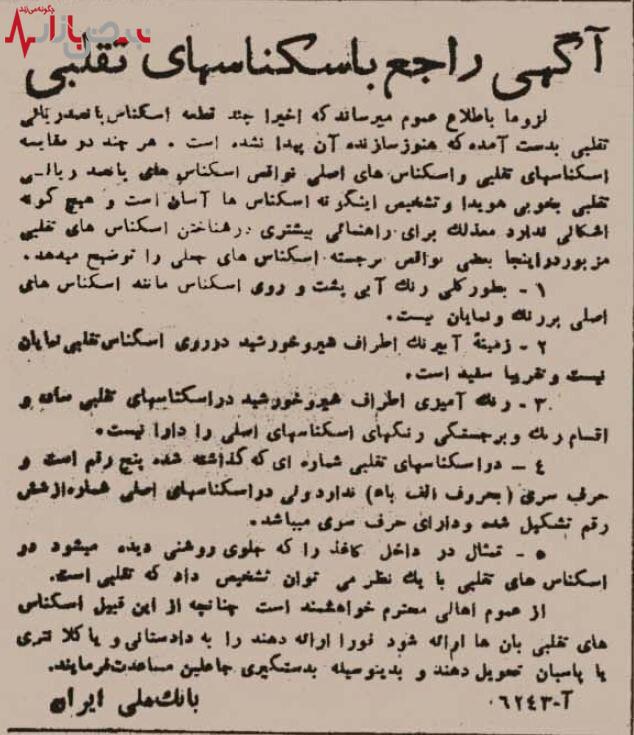 چگونه می‌زند
نبض بازار
آگهی راجع باسکناسهای تقلبی
لزوما باطلاع عموم میرساند که اخیرا چند قطعه اسکناس پانصد ریالی
تقلبی بدست آمده که هنوز سازنده آن پیدا نشده است . هر چند در مقایسه
اسکناسهای تقلبی و اسکناس های اصلی نواقص اسکناس های پانصد ریالی
تقلبی بخوبی هویدا و تشخیص اینگونه اسکناس ها آسان است و هیچ گونه
اشکالی ندارد معذلك برای راهنمائی بیشتری در شناختن اسکناس های تقلبی
مزبور در اینجا بعضی نواقص برجسته اسکناس های جعلی را توضیح میدهد .
۱ - بطور کلی رنك آبی پشت و روی اسکناس مانند اسکناس های
اصلی پررنك و نمایان نیست .
۲ - زمینهٔ آبیرنك اطراف شیر و خورشید در روی اسکناس تقلبی نمایان
نیست و تقریبا سفید است .
۳ - رنك آمیزی اطراف شیر و خورشید در اسکناسهای تقلبی ساده و
اقسام رنك و برجستگی رنگهای اسکناسهای اصلی را دارا نیست .
٤ - در اسکناسهای تقلبی شماره ای که گذاشته شده پنج رقم است و
حرف سری ( بحروف الف باء ) ندارد ولی در اسکناسهای اصلی شماره از شش
رقم تشکیل شده و دارای حرف سری میباشد .
٥ - تمثال در داخل کاغذ را که جلوی روشنی دیده میشود در
اسکناس های تقلبی با یك نظر می توان تشخیص داد که تقلبی است .
از عموم اهالی محترم خواهشمند است چنانچه از این قبیل اسکناس
های تقلبی بان ها ارائه شود فورا ارائه دهند را به دادستانی و یا کلانتری
یا پاسبان تحویل دهند و بدینوسیله بدستگیری جاعلین مساعدت فرمایند .
آ-٠٦٢٤٣ بانك ملی ایران